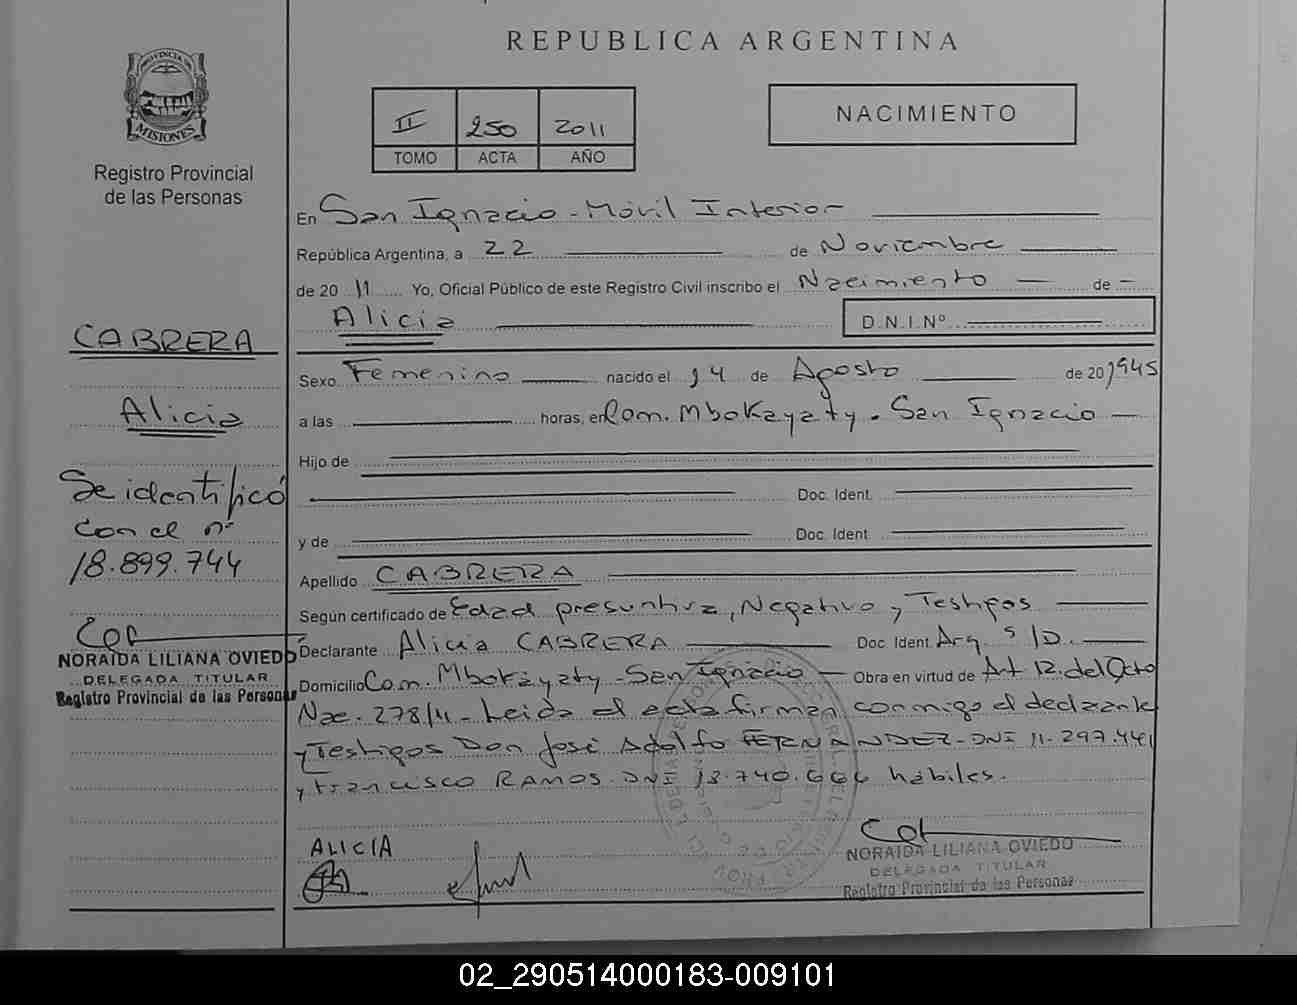 REPUBLICA ARGENTINA
PROVINCIA DE
MISIONES
Registro Provincial
de las Personas
II 250 2011
TOMO ACTA AÑO
NACIMIENTO
En San Ignacio - Móvil Interior
República Argentina, a 22 de Noviembre
de 20 11 Yo, Oficial Público de este Registro Civil inscribo el Nacimiento — de —
Alicia D.N.I. Nº
CABRERA
Alicia
Se identificó
con el nº
18.899.744
NORAIDA LILIANA OVIEDO
DELEGADA TITULAR
Registro Provincial de las Personas
Sexo Femenino nacido el 14 de Agosto de 20 1945
a las horas, en Com. Mbokayaty - San Ignacio —
Hijo de
Doc. Ident.
y de Doc. Ident.
Apellido CABRERA
Según certificado de Edad presuntiva, Negativo y Testigos
Declarante Alicia CABRERA Doc. Ident. Arg. S/D.
Domicilio Com. Mbokayaty - San Ignacio — Obra en virtud de Art 12. del Dcto
Nac. 278/11 - Leida el acta firman conmigo el declarante
y Testigos Don José Adolfo FERNANDEZ - DNI 11.297.441
y Francisco RAMOS. DNI 13.740.666 hábiles.
ALICIA
NORAIDA LILIANA OVIEDO
DELEGADA TITULAR
Registro Provincial de las Personas
02_290514000183-009101